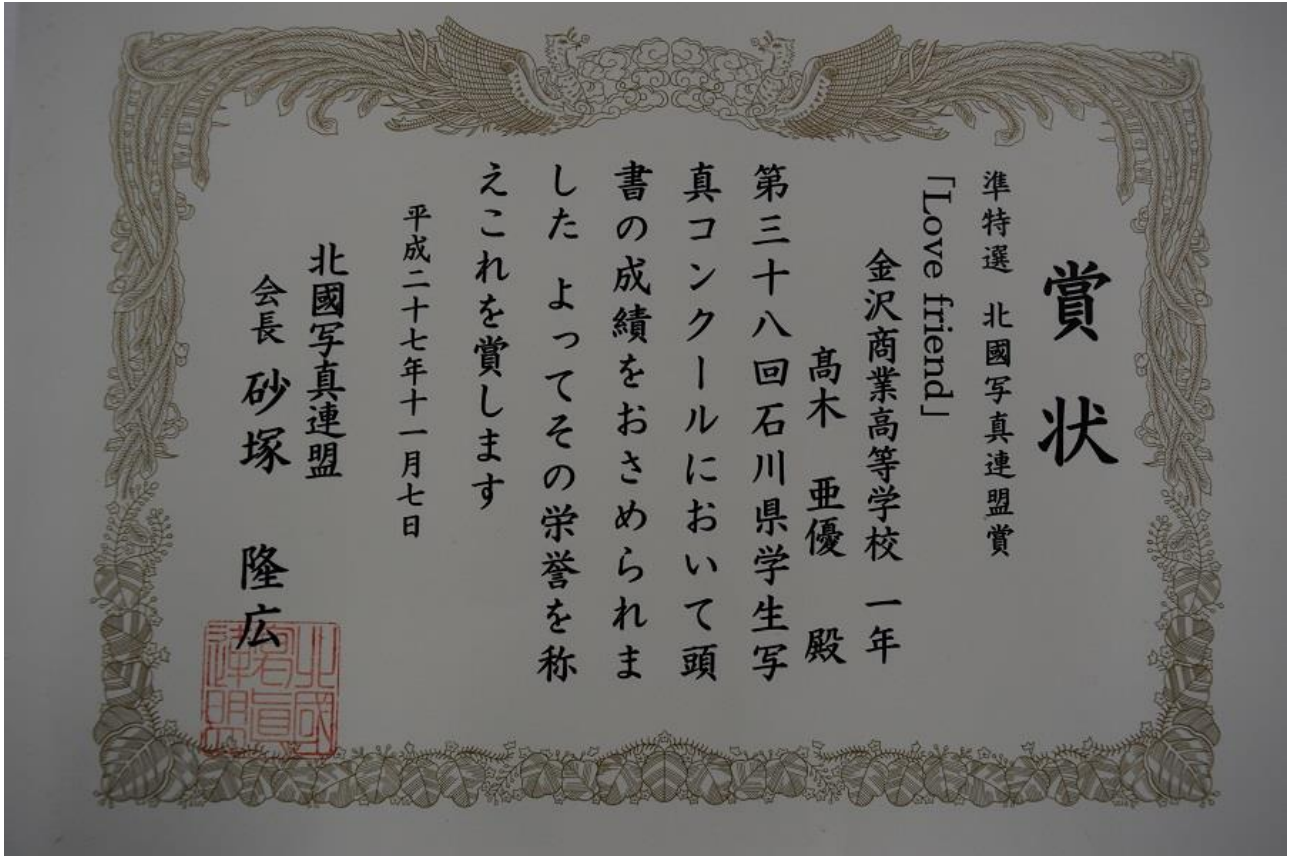 賞状
準特選 北國写真連盟賞
「Love friend」
金沢商業高等学校 一年
髙木 亜優 殿
第三十八回石川県学生写
真コンクールにおいて頭
書の成績をおさめられま
した よってその栄誉を称
えこれを賞します
平成二十七年十一月七日
北國写真連盟
会長 砂塚 隆広
北國
寫眞
連盟